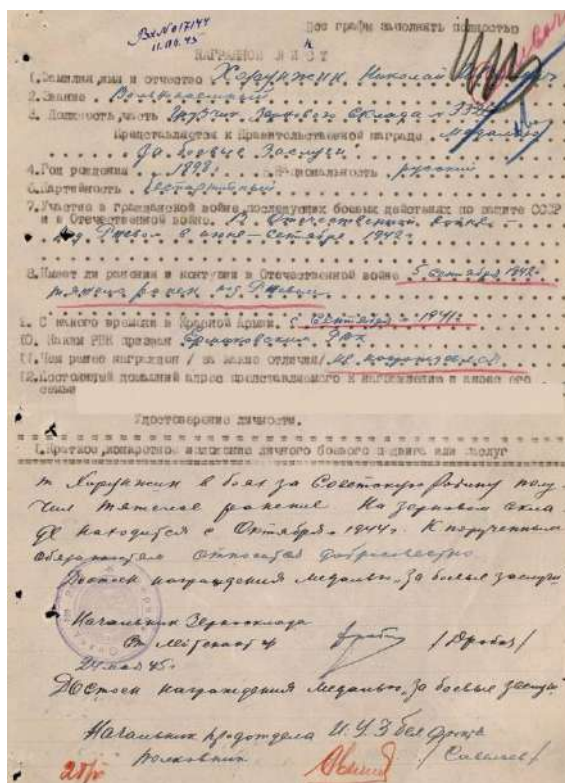 Вх№017144
11.VIII.45
Все графы заполнять полностью
НАГРАДНОЙ ЛИСТ
1. Фамилия, имя и отчество Хорунжик Николай
2. Звание Военнослужащий
3. Должность, часть Грузчик Зернового Склада №
Представляется к Правительственной награде Медалью
За боевые Заслуги
4. Год рождения 1898 5. Национальность русский
6. Партийность беспартийный
7. Участие в гражданской войне, последующих боевых действиях по защите СССР
и в Отечественной войне. В Отечественной войне
под Ржевом в июне-сентябре 1942г
8. Имеет ли ранения и контузии в Отечественной войне 5 сентября 1942г
тяжело ранен под Ржевом
9. С какого времени в Красной Армии с Сентября 1941г
10. Каким РВК призван РВК
11. Чем ранее награжден /за какие отличия/ не награждался
12. Постоянный домашний адрес представляемого к награждению и адрес его
семьи
Удостоверение личности.
1. Краткое, конкретное изложение личного боевого подвига или заслуг
т Хорунжик в боях за Советскую Родину полу-
чил тяжелое ранение. На зерновом скла-
де находится с Октября 1944г. К порученным
обязанностям относится добросовестно.
Достоин награждения Медалью "За боевые заслуги"
Начальник Зерносклада
Ст Лейтенант /Дробот/
24 мая 45г
Достоин награждения Медалью "За боевые заслуги"
Начальник продотдела И.У. 3 Бел Фронта
полковник /Савельев/